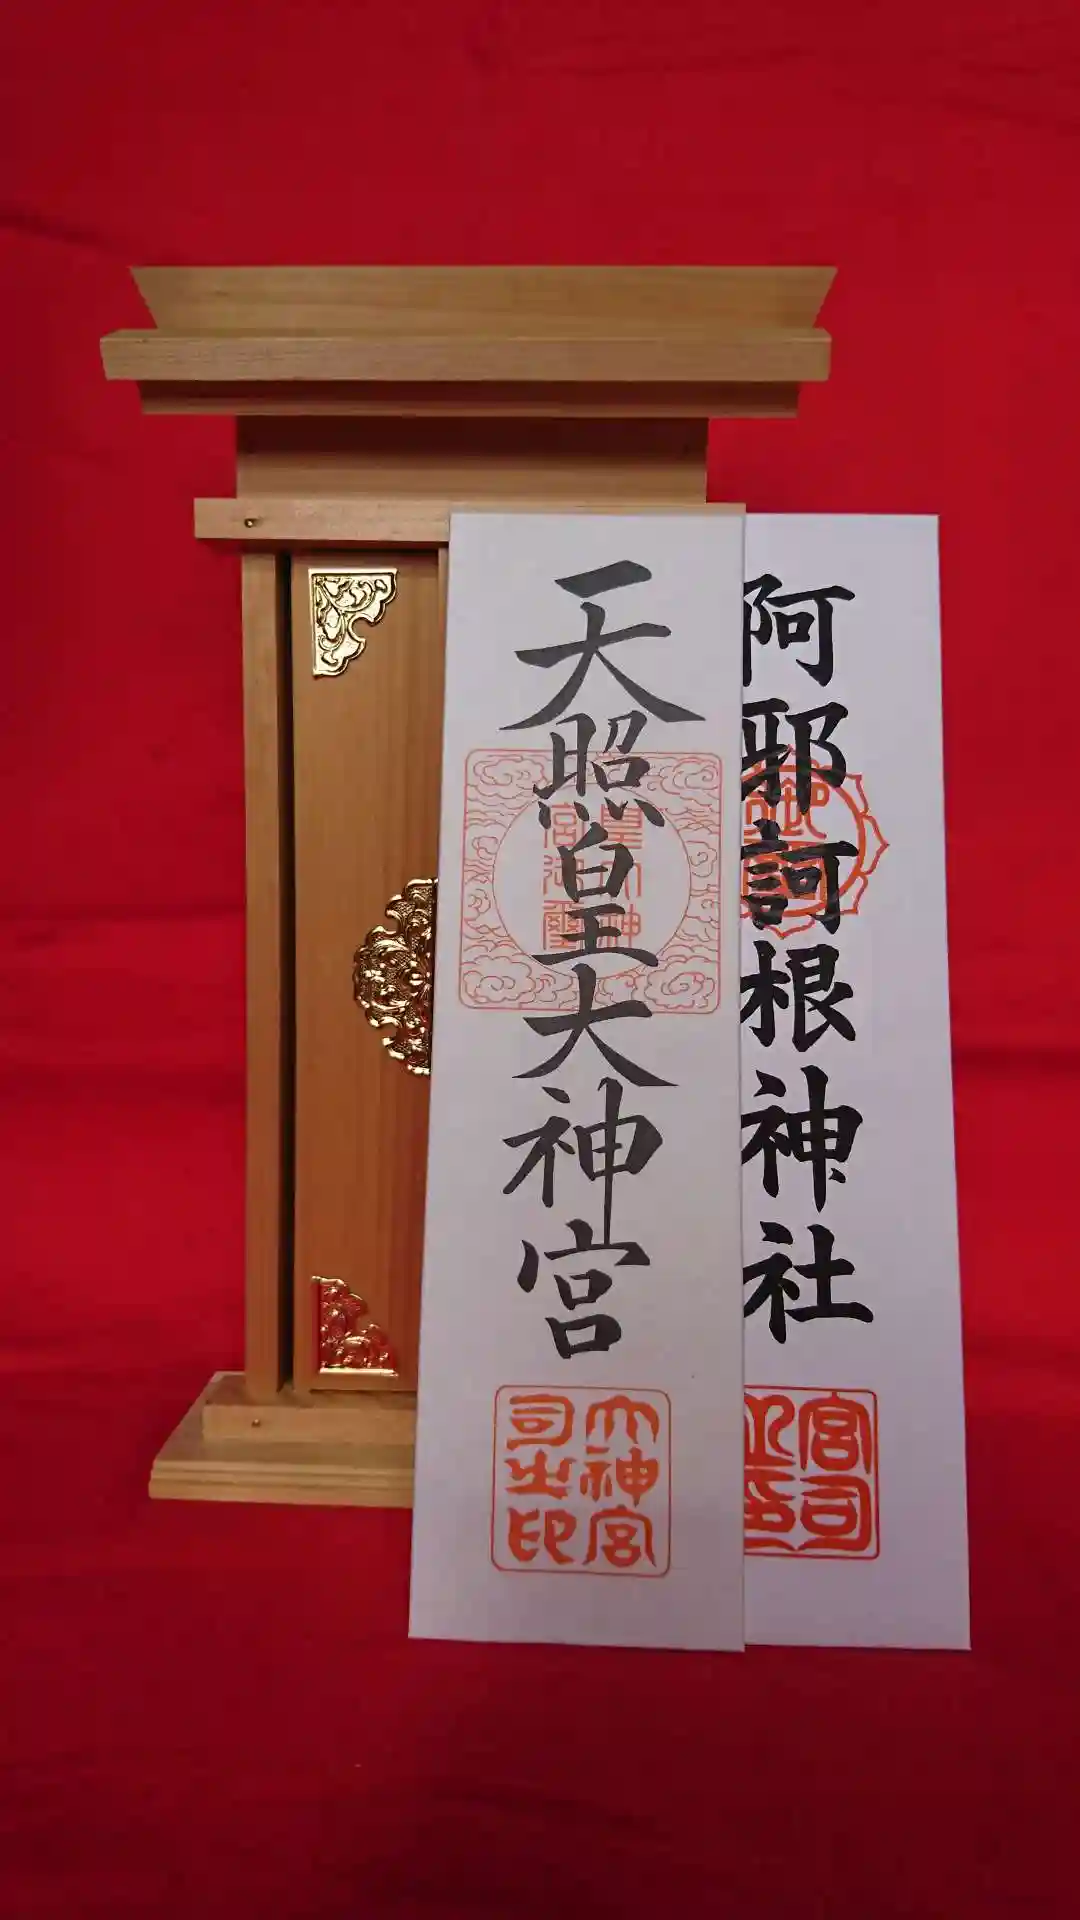 天照皇大神宮
皇大神宮御璽
大神宮司之印
阿耶訶根神社
宮司之印